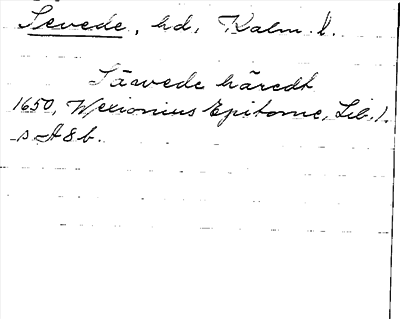 Sevede, hd, Kalm. l.
Säwede häredt
1650, Wexionius Epitome, Lib. 1.
s A 8 b.